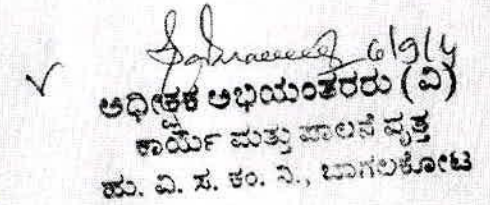 6/9/14
ಅಧೀಕ್ಷಕ ಅಭಿಯಂತರರು (ವಿ)
ಕಾರ್ಯ ಮತ್ತು ಪಾಲನೆ ವೃತ್ತ
ಹು. ವಿ. ಸ. ಕಂ. ನಿ., ಬಾಗಲಕೋಟ